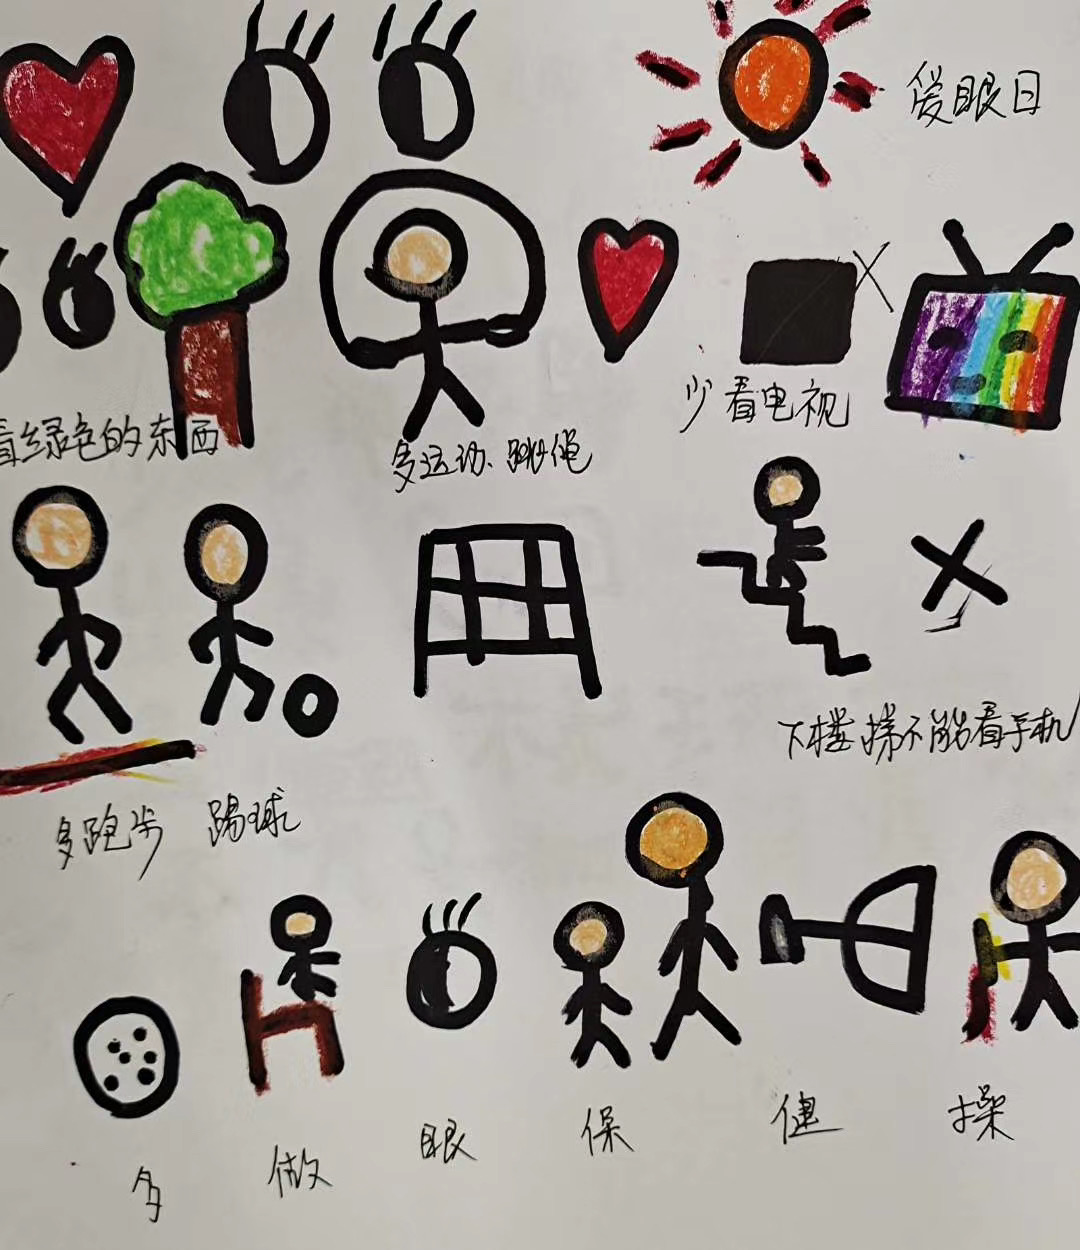 爱眼日
看绿色的东西
多运动、跳绳
少看电视
下楼梯不能看手机
多跑步 踢球
多 做 眼 保 健 操